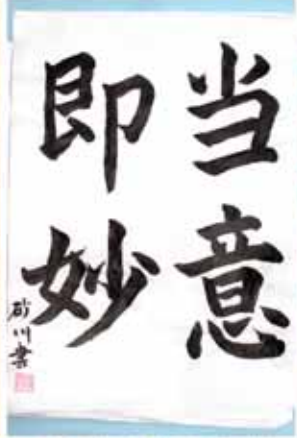 当意
即妙
砂川書